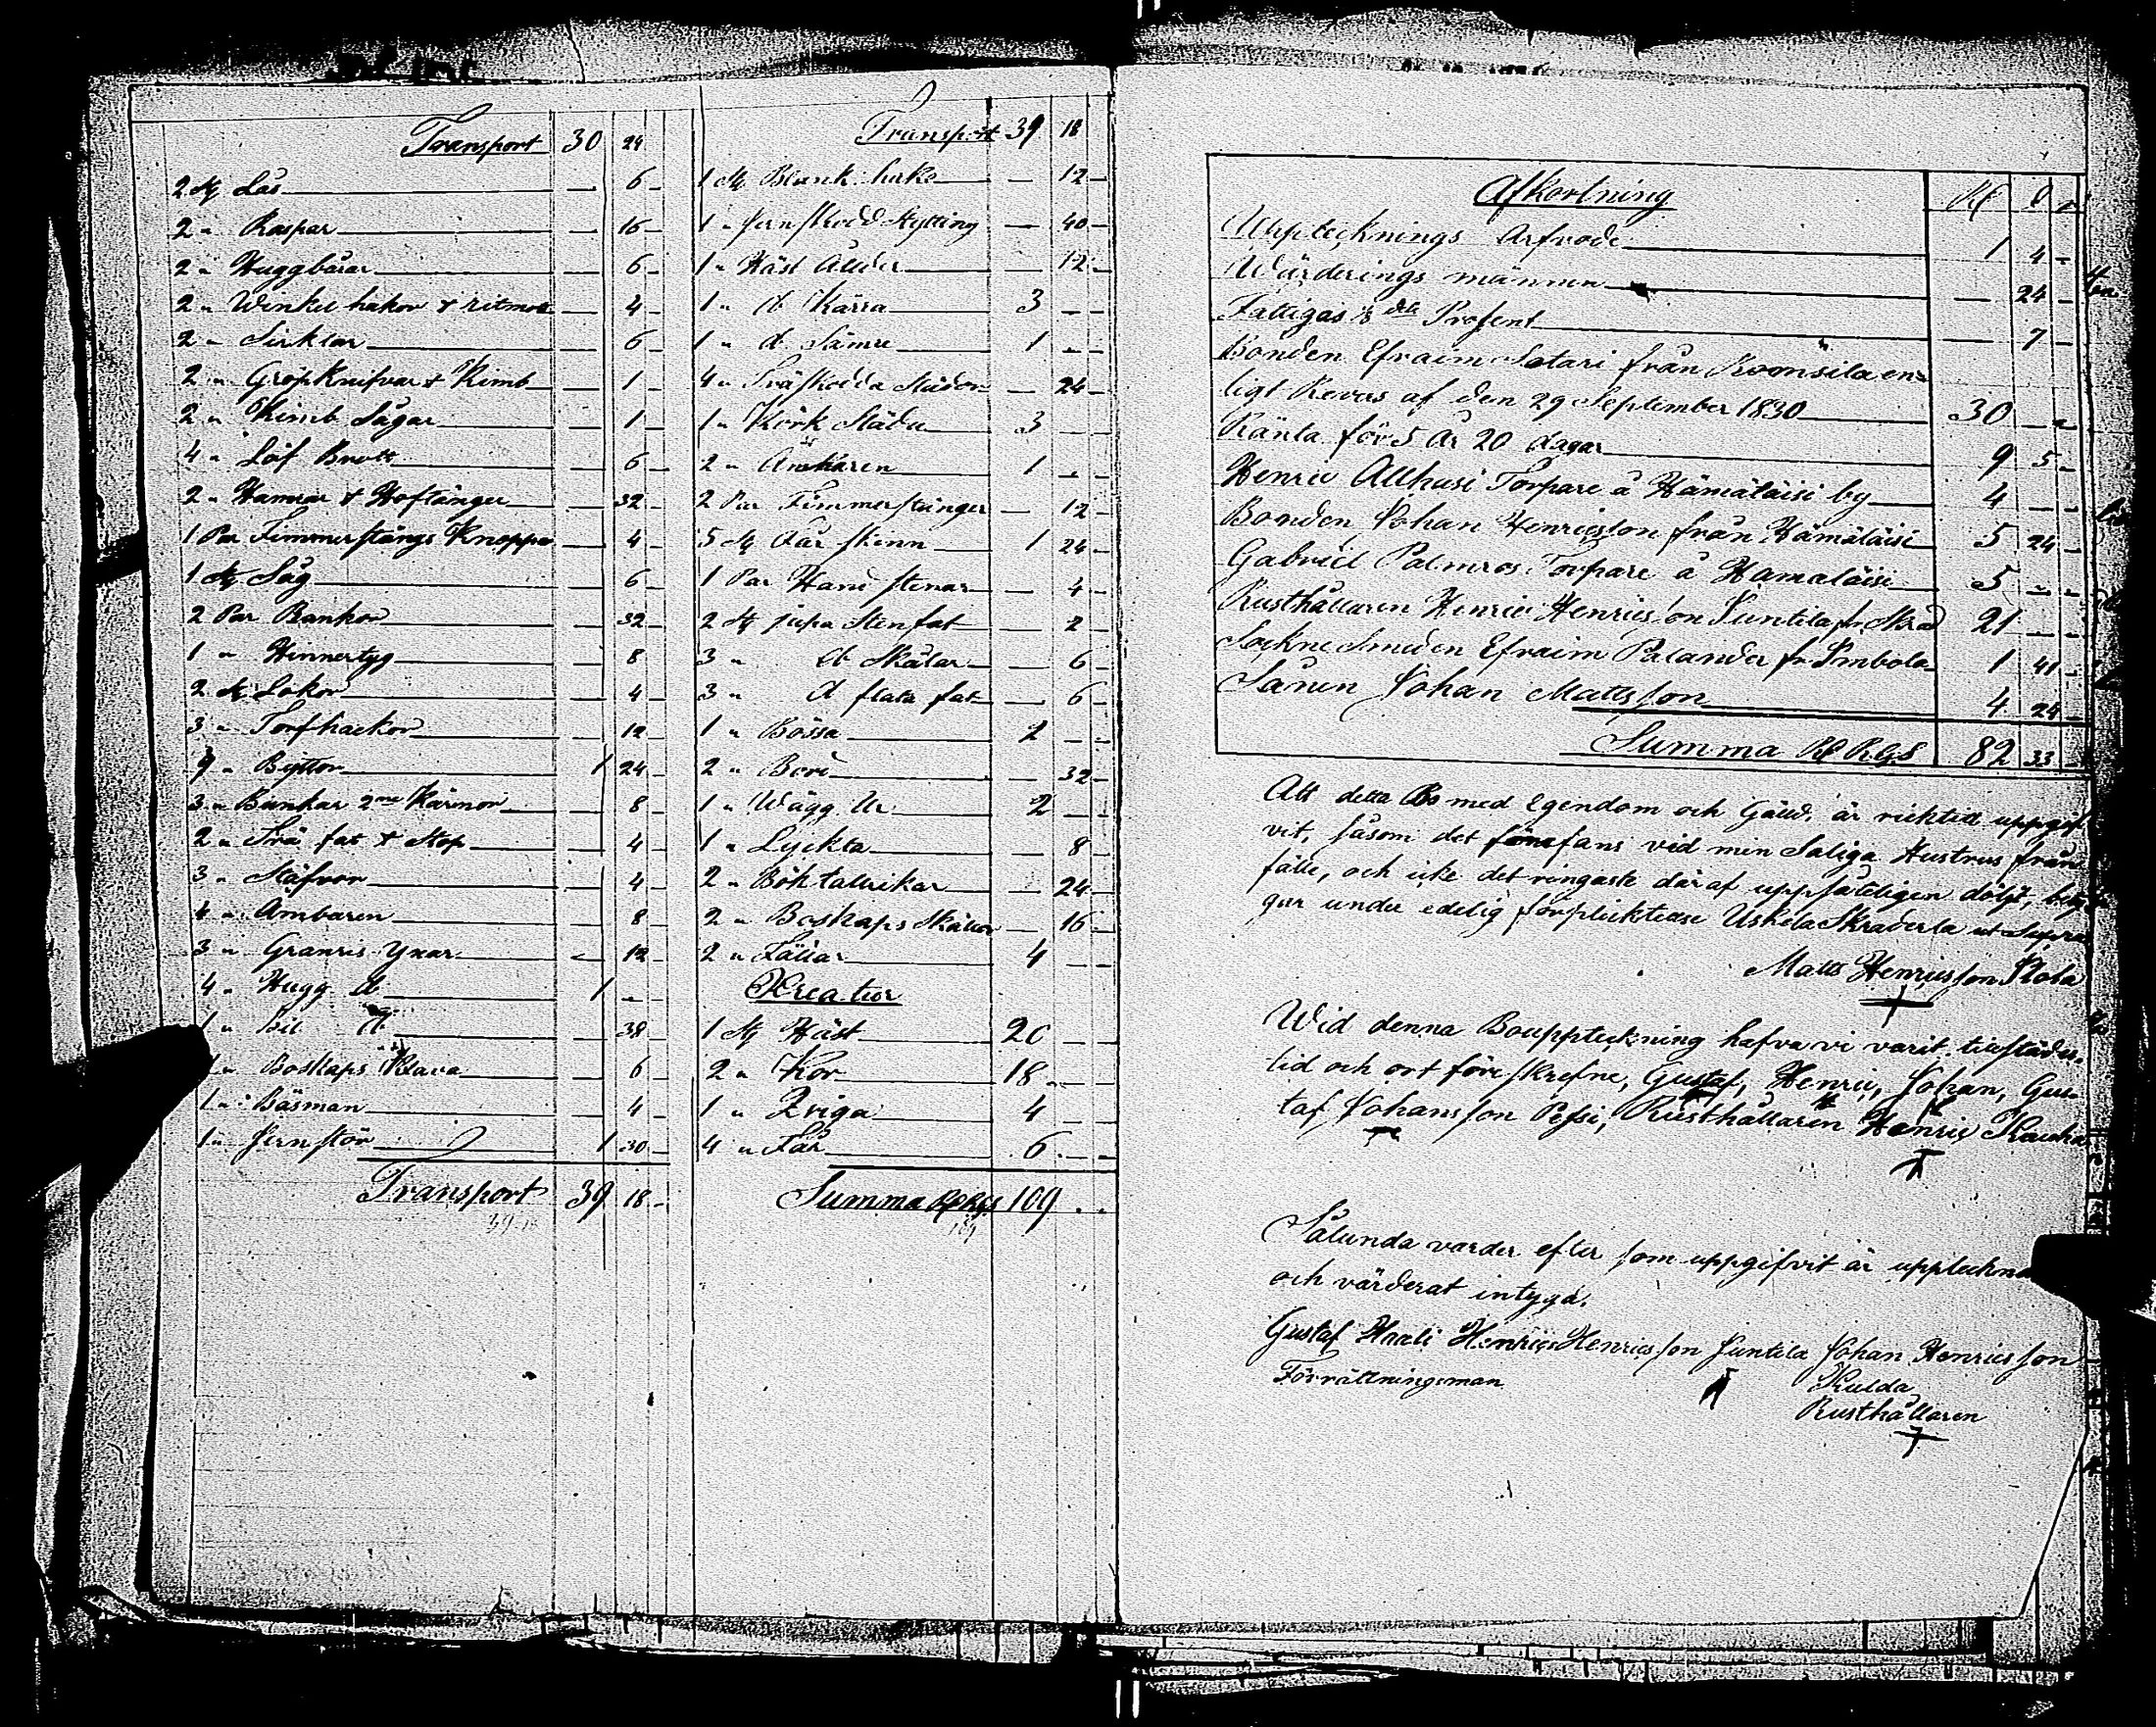 Transport 30 24
2 St Lås — 6 -
2 " Raspar — 16 -
2 " Huggbårar — 6 -
2 " Winkel hakor & ritmott — 4 -
2 " Sirklar — 6 -
2 " Gröpknifvar & Kimb — 1 -
2 " Kimb Sågar — 1 -
4 " Löf Brott — 6 -
2 " Hamrar & Hoftänger — 32 -
1 Par Timmerstångs Knoppar — 4 -
1 St Såg — 6 -
2 Par Bankor — 32 -
1 " Hinnertyg — 8
2 St Lökor — 4 -
3 " Torfhackor — 12
9 " Byttor 1 24 -
3 " Bunkar 2ne Kärnor — 8 -
2 " Trä fat & Stop — 4 -
3 " Stäfvor — 4 -
4 " Ambaren — 8
3 " Granris Yxar — 12 -
4 " Hugg d: 1 - -
1 " Bil d: 38 -
1 " Boskaps Klava — 6 -
1 " Bäsman — 4 -
1 " Jern stör 1 30 -
Transport 39 18 -
39.18
Transport 39 18
1 St Blank hake — 12 -
1 " Jernskodd Kytting — 40 -
1 " Häst — 12 -
1 " d: Kärra 3 - -
1 " d: Sämre 1 - -
4 " Träskodda Slädor — 24 -
1 " Körk Släda 3 - -
2 " Ämbaren 1 - -
2 Par Timmerstänger — 12 -
5 St Får skinn 1 24 -
1 Par Hand stenar — 4 -
2 St jupa Stenfat — 2 -
3 " d: Skålar — 6 -
3 " d: flata fat — 6 -
1 " Bössa 2 - -
2 " Bord — 32 -
1 " Wägg Ur 2 - -
1 " Lyckta — 8 -
2 " — 24 -
2 " Boskaps Skällor — 16 -
2 " Fällar 4 - -
Kreatur
1 St Häst 20 - -
2 " Kor 18 - -
1 " Kviga 4 - -
4 " Får 6 - -
Summa RRgs 109 . .
109
Afkortning R S
Uppteknings Arfvode 1 4 -
Wärderings männen — 24 -
Fattigas 1/8 dels Prosent — 7 -
Bonden Efraim Satari från Koonsila en-
ligt Revers af den 29 September 1830 30 - -
Ränta för 5 År 20 dagar 9 5 -
Henric Allhusi Torpare å Hämäläisi by 4 - -
Bonden Johan Henricsson från Hämäläisi 5 24 -
Gabriel Palmros Torpare å Hamaläisi 5 - -
Rusthållaren Henric Henricsson Juntila fr. Skrad 21 - -
Sockne Smeden Efraim Palander fr Imbola 1 41 -
Johan Mattsson 4 24 -
Summa R RGS 82 33 -
Att detta Bo med Egendom och Gäld, är ricktia uppgif-
vit, såsom det fans vid min Saliga Hustrus från
fälle, och icke det ringaste däraf uppsåteligen döljt,
gar under edelig förplicktelse Uskela Skraderla ut Supra
Matts Henricsson Stola
Wid denna Bouppteckning hafva vi varit tillstädes
tid och ort föreskrefne, Gustaf, Henric, Johan, Gus-
taf Johansson Pessi, Rusthållaren Henric Kauha
Sålunda varder efter som uppgifvit är uppteckna
och värderat intyga.
Gustaf Haali Henrics Henricsson Juntila Johan Henricsson
Förrättningsman Kulda
Rusthållaren